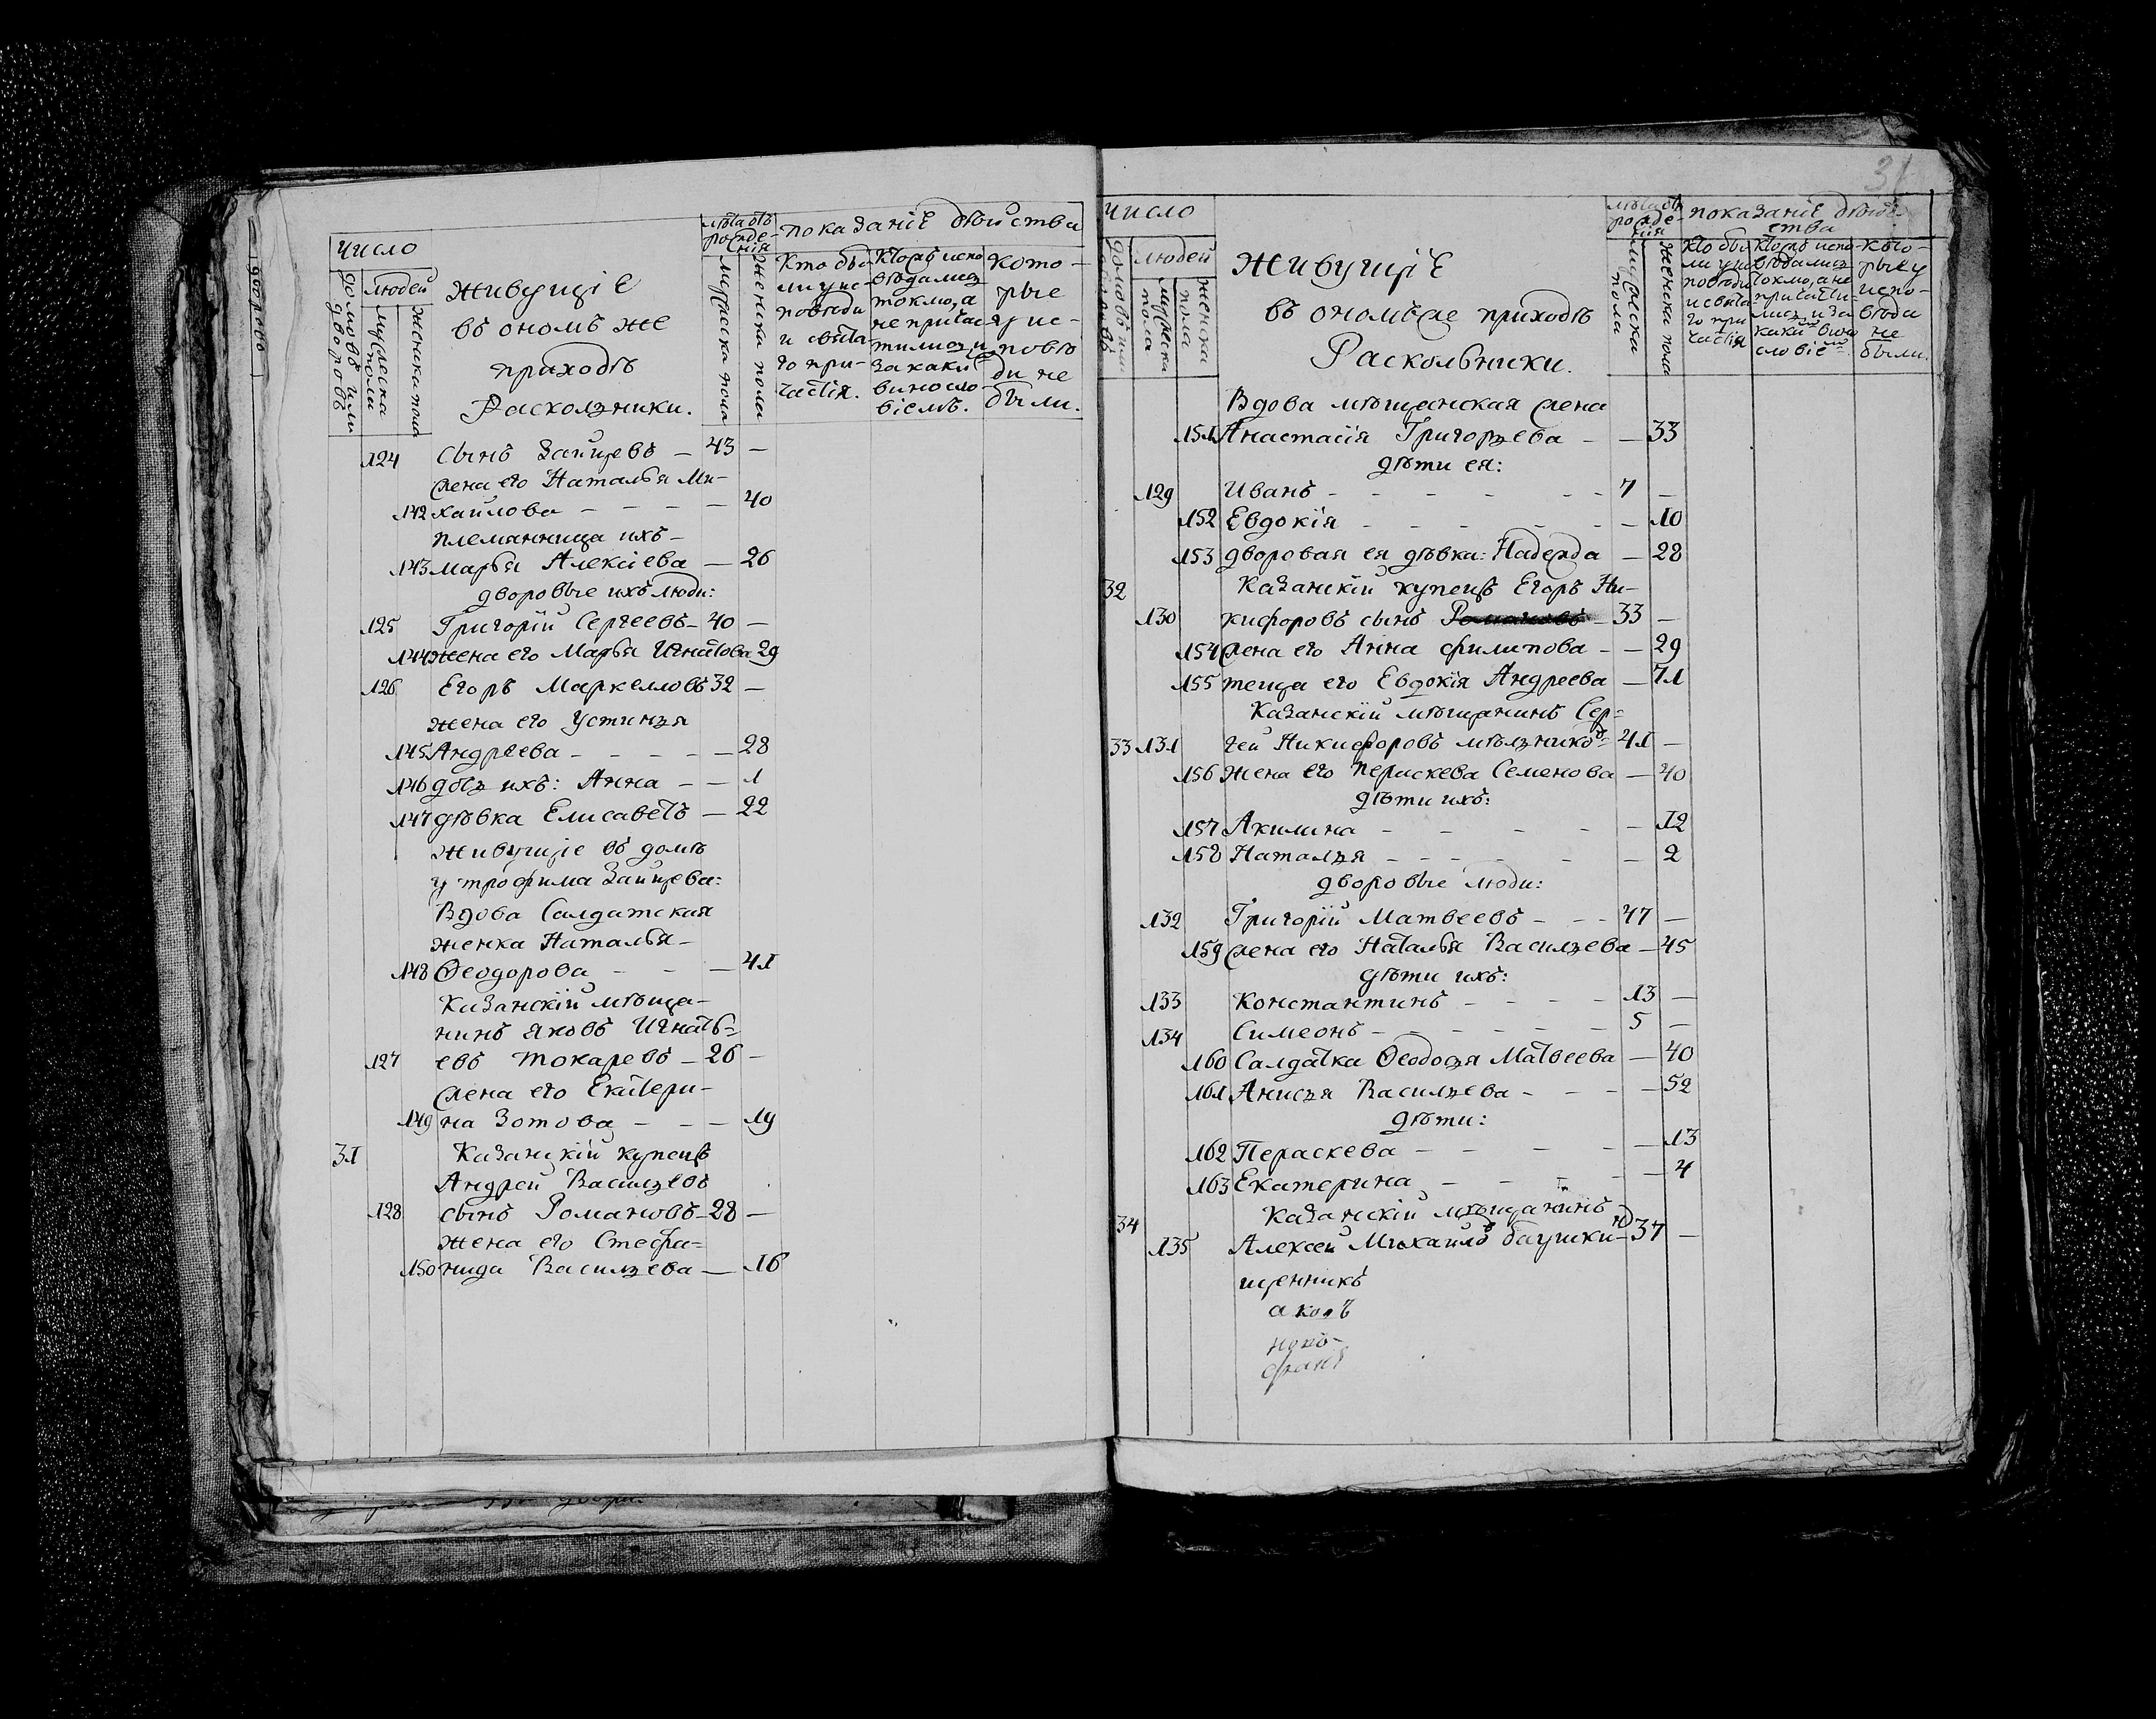 число
людей
домовъ или дворовъ
мужеска пола
женска пола
Живущіе
въ ономъ же
приходѣ
Расколзники.
лѣта отъ рожденія
мужеска пола
женска пола
показаніе дѣйства
Кто были у исповѣди и святаго причастія.
Кто жъ исповѣдались токмо, а не причастились, и за какимъ винословіемъ.
которые у исповѣди не были.
124 сынъ Зайцевъ — 43 —
жена его Наталья Ми-
142 хаилова — — — — 40
племянница ихъ —
143 марья Алексіева — 26
дворовые ихъ люди:
125 Григорій Сергеевъ — 40 —
144 жена его Марья Игнатова 29
126 Егоръ Маркелловъ 32 —
жена его Устинья
145 Андреева — — — — — 28
146 дочь ихъ: Анна — — 1
147 дѣвка Елисаветъ — 22
живущіе въ домѣ
у трофима Зайцева:
Вдова Салдатская
женка Наталья —
148 Ѳеодорова — — — 41
Казанскій мѣща-
нинъ яковъ Игнать-
127 евъ токаревъ — 26 —
жена его Екатери-
149 на Зотова — — — 19
31 Казанскій купецъ
Андрей Васильевъ
128 сынъ Романовъ — 28 —
жена его Стефа-
150 нида Васильева — 16
31
число
людей
домовъ или дворовъ
мужеска пола
женска пола
Живущіе
въ ономъ же приходѣ
Раскольники.
лѣта отъ рожденія
мужеска пола
женска пола
показаніе дѣйства
Кто были у исповѣди и святаго причастія
Кто жъ исповѣдались токмо, а не причастились, и за какимъ винословіемъ.
которые у исповѣди не были.
Вдова мѣщанская жена
151 Анастасія Григорьева — — 33
дѣти ея:
129 Иванъ — — — — — — 7 —
152 Евдокія — — — — — — 10
153 дворовая ея дѣвка: Надежда — 28
32 Казанскій купецъ Егоръ Ни-
130 кифоровъ сынъ Романовъ — 33 —
154 жена его Анна филипова — — 29
155 теща его Евдокія Андреева — 71
Казанскій мѣщанинъ Сер-
33 131 гей Никифоровъ мѣлзниковъ — 41 —
156 жена его Пераскева Семенова — 40
дѣти ихъ:
157 Акилина — — — — — 12
158 Наталья — — — — — — 2
дворовые люди:
132 Григорій Матвеевъ — — — 47 —
159 жена его Наталья Васильева — 45
дѣти ихъ:
133 Константинъ — — — — 13 —
134 Симеонъ — — — — — — 5 —
160 Салдатка Ѳеодосья Матвеева — 40
161 Анисья Васильева — — — — 52
дѣти:
162 Пераскева — — — — — 13
163 Екатерина — — — — — 4
34 Казанскій мѣщанинъ
135 Алексей Михаиловъ баушкинъ — 37 —
щенникъ